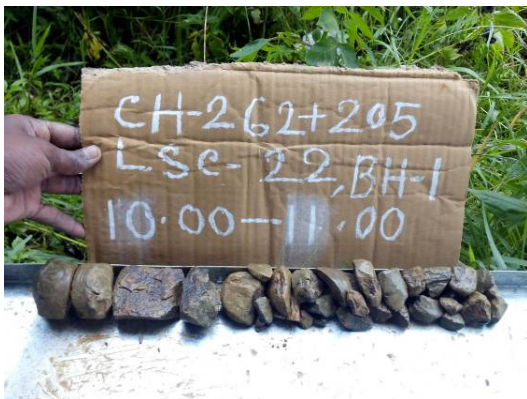 CH-262+205
LSC-22, BH-1
10.00-11.00